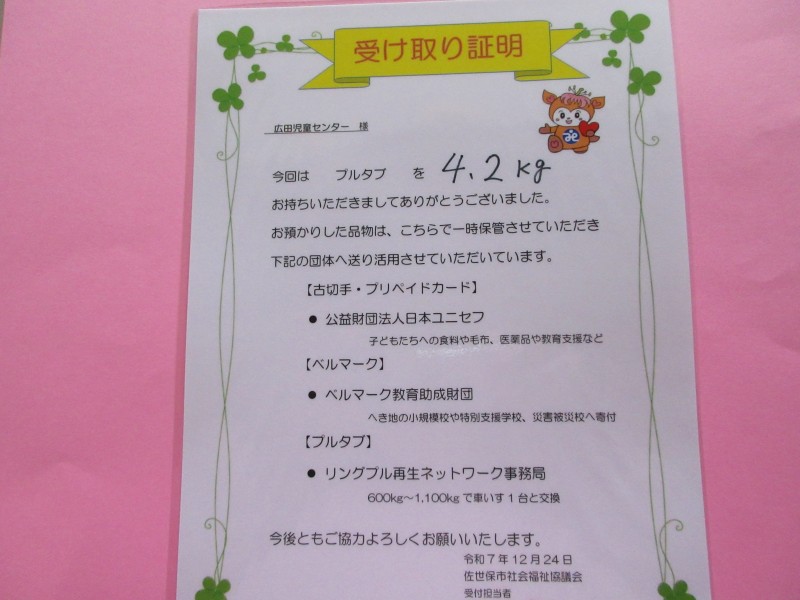 受け取り証明
広田児童センター 様
今回は プルタブ を 4.2kg
お持ちいただきましてありがとうございました。
お預かりした品物は、こちらで一時保管させていただき
下記の団体へ送り活用させていただいています。
【古切手・プリペイドカード】
● 公益財団法人日本ユニセフ
子どもたちへの食料や毛布、医薬品や教育支援など
【ベルマーク】
● ベルマーク教育助成財団
へき地の小規模校や特別支援学校、災害被災校へ寄付
【プルタブ】
● リングプル再生ネットワーク事務局
600kg～1,100kgで車いす1台と交換
今後ともご協力よろしくお願いいたします。
令和7年12月24日
佐世保市社会福祉協議会
受付担当者